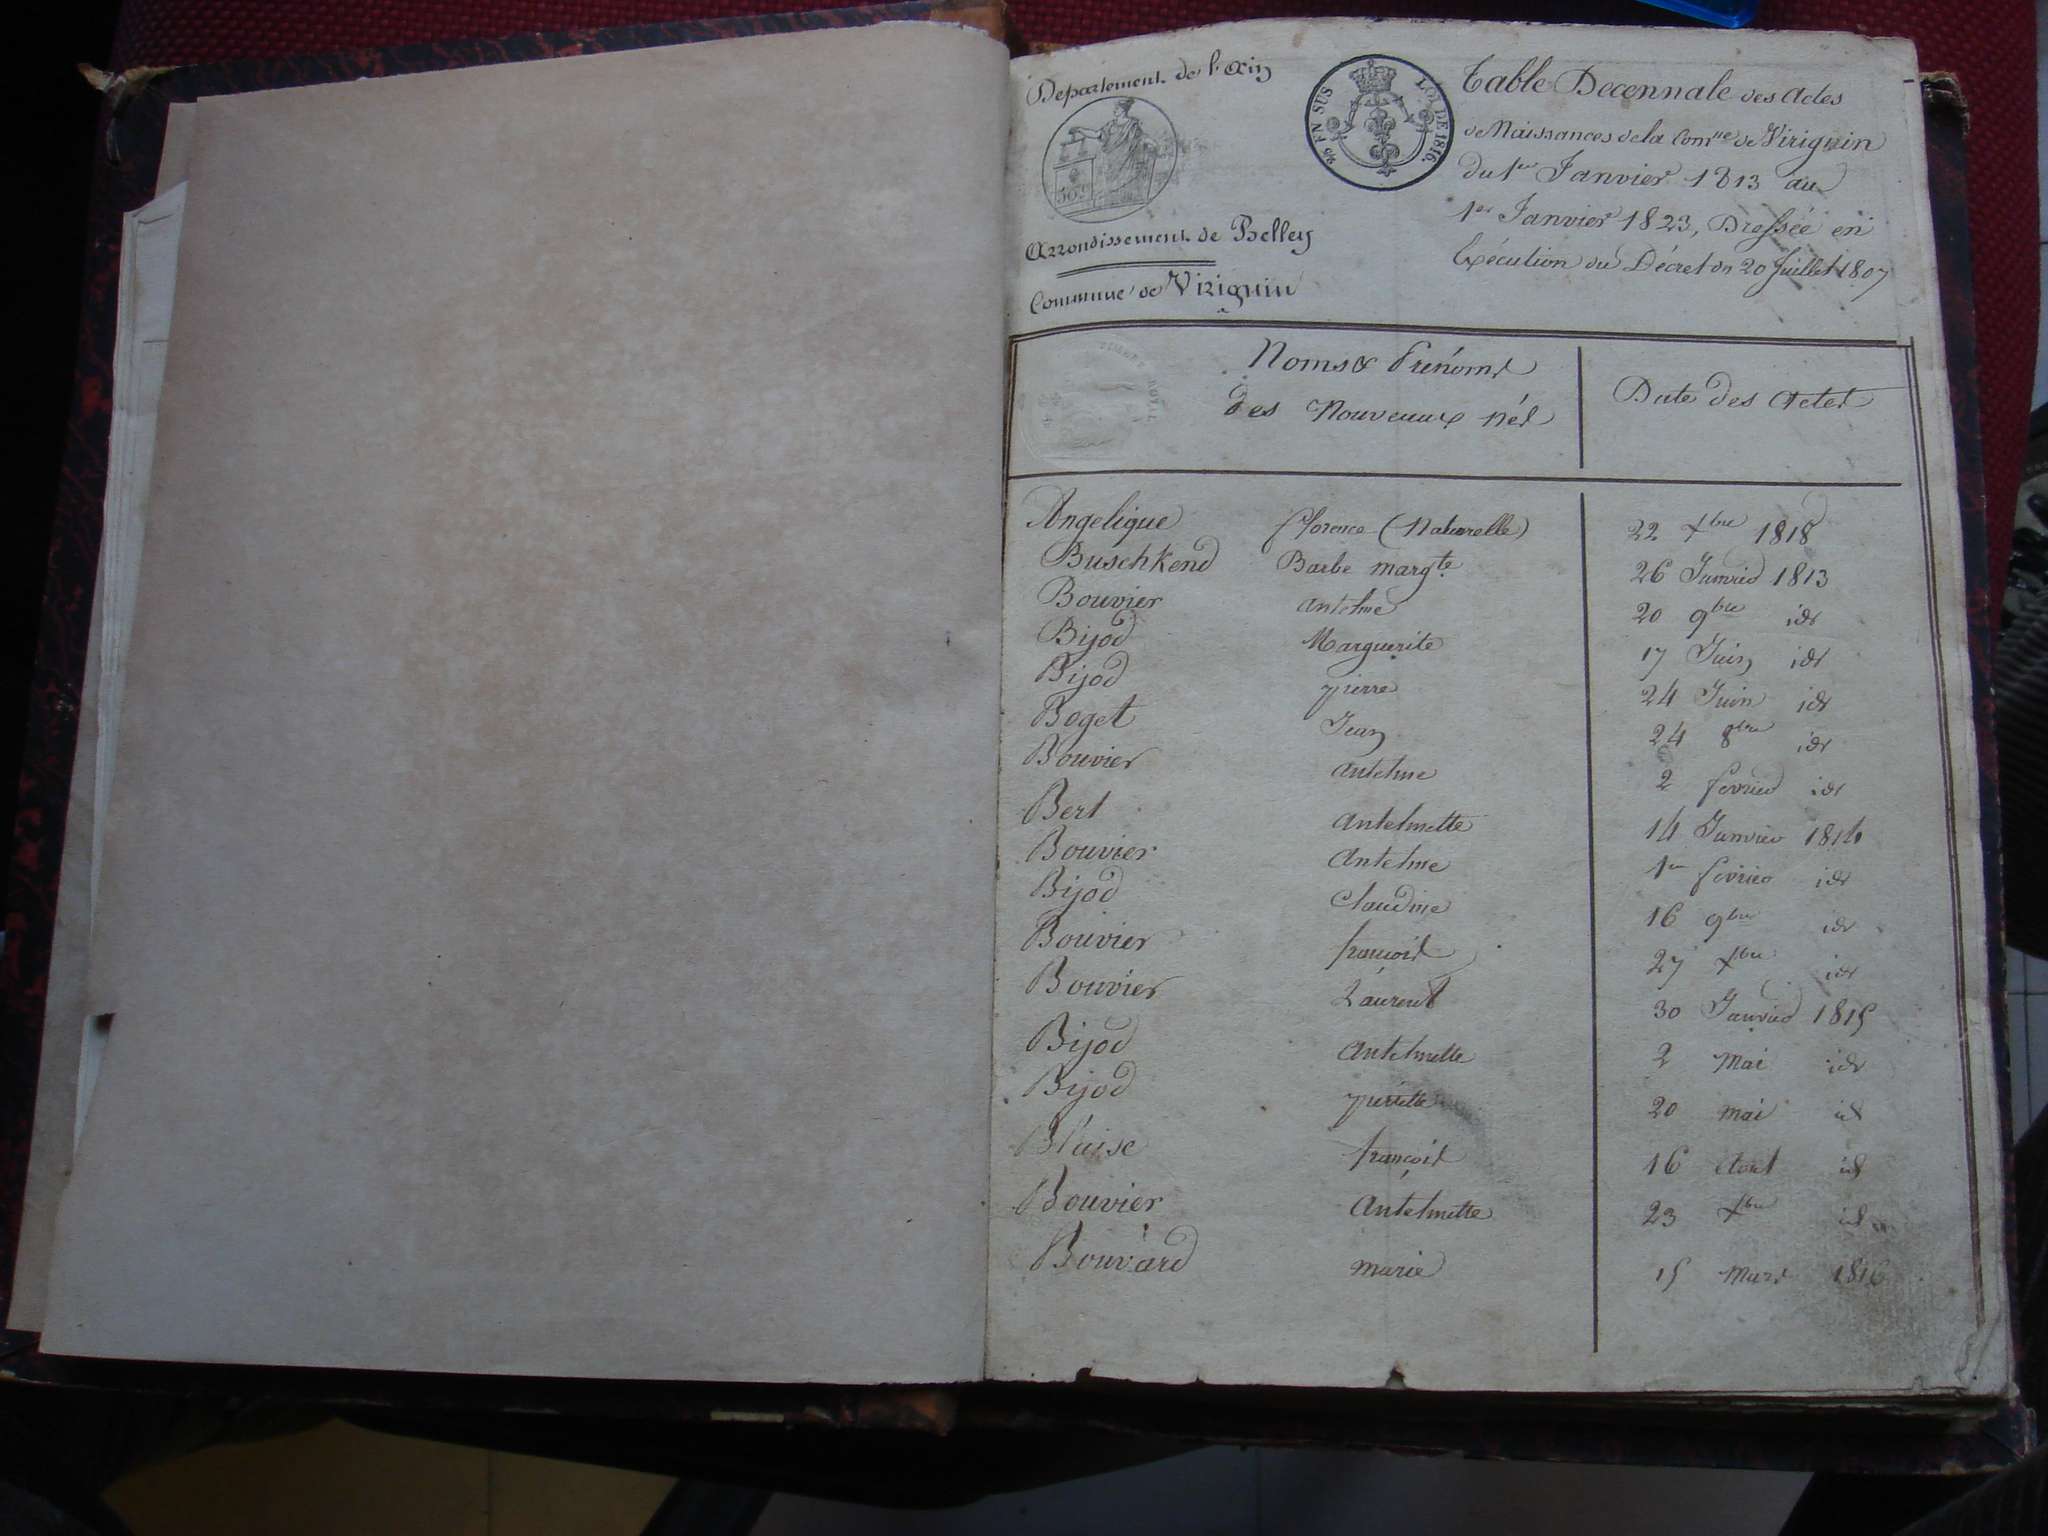 Departement de l'ain
50 c
Arrondissement de Belley
Commune de Virignin
EN SUS
LOI DE 1816.
Table Decennale des Actes
de Naissances de la Comne de Virignin
du 1er Janvier 1813 au
1er Janvier 1823, Dressée en
Exécution du Décret du 20 Juillet 1807
Noms & Prénoms
des Nouveaux Nés
Date des Actes
Angelique florence (Naturelle) 22 Xbre 1818
Buschkend Barbe margte 26 Janvier 1813
Bouvier antelme 20 9bre id
Bijod Marguerite 17 Juin id
Bijod pierre 24 Juin id
Boget Jean 24 8bre id
Bouvier antelme 2 fevrier id
Bert antelmette 14 Janvier 1814
Bouvier antelme 1er fevrier id
Bijod Claudine 16 9bre id
Bouvier françois 27 Xbre id
Bouvier Laurent 30 Janvier 1815
Bijod antelmette 2 mai id
Bijod pierrette 20 mai id
Blaise françois 16 Aout id
Bouvier Antelmette 23 Xbre id
Bouvard marie 15 mars 1816